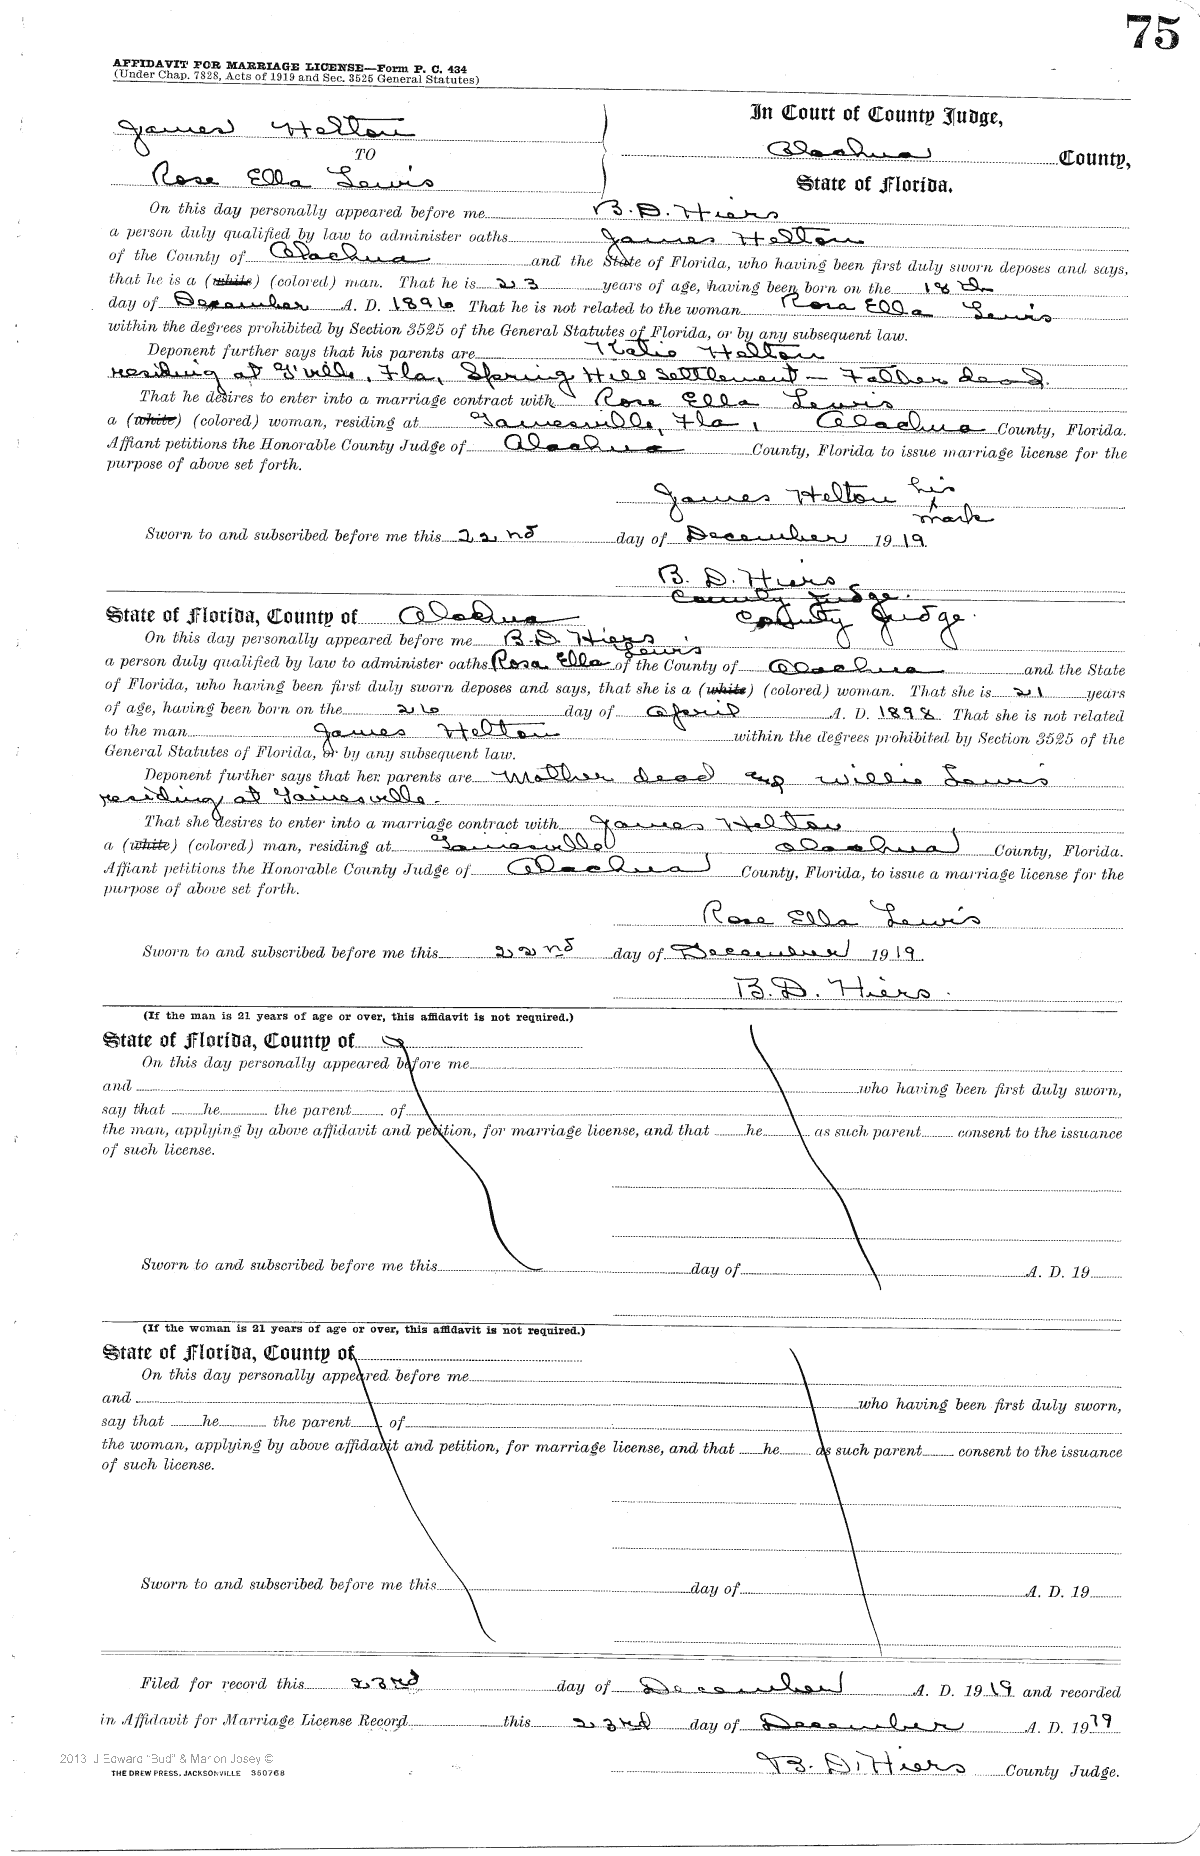 75
AFFIDAVIT FOR MARRIAGE LICENSE—Form P. C. 434
(Under Chap. 7828, Acts of 1919 and Sec. 3525 General Statutes)
James Helton
TO
Rose Ella Lewis
In Court of County Judge,
Alachua County,
State of Florida.
On this day personally appeared before me B. D. Hiers
a person duly qualified by law to administer oaths James Helton
of the County of Alachua and the State of Florida, who having been first duly sworn deposes and says,
that he is a (white) (colored) man. That he is 23 years of age, having been born on the 18th
day of December A. D. 1896 That he is not related to the woman Rosa Ella Lewis
within the degrees prohibited by Section 3525 of the General Statutes of Florida, or by any subsequent law.
Deponent further says that his parents are Katie Helton
residing at G'ville, Fla, Spring Hill settlement — Father dead.
That he desires to enter into a marriage contract with Rose Ella Lewis
a (white) (colored) woman, residing at Gainesville, Fla, Alachua County, Florida.
Affiant petitions the Honorable County Judge of Alachua County, Florida to issue marriage license for the
purpose of above set forth.
James Helton his
x
mark
Sworn to and subscribed before me this 22nd day of December 1919
B. D. Hiers
County Judge.
State of Florida, County of Alachua County Judge.
On this day personally appeared before me B. D. Hiers
a person duly qualified by law to administer oaths Rosa Ella Lewis of the County of Alachua and the State
of Florida, who having been first duly sworn deposes and says, that she is a (white) (colored) woman. That she is 21 years
of age, having been born on the 26 day of April A. D. 1898 That she is not related
to the man James Helton within the degrees prohibited by Section 3525 of the
General Statutes of Florida, or by any subsequent law.
Deponent further says that her parents are Mother dead and Willie Lewis
residing at Gainesville.
That she desires to enter into a marriage contract with James Helton
a (white) (colored) man, residing at Gainesville Alachua County, Florida.
Affiant petitions the Honorable County Judge of Alachua County, Florida, to issue a marriage license for the
purpose of above set forth.
Rose Ella Lewis
Sworn to and subscribed before me this 22nd day of December 1919
B. D. Hiers.
(If the man is 21 years of age or over, this affidavit is not required.)
State of Florida, County of
On this day personally appeared before me
and who having been first duly sworn,
say that he the parent of
the man, applying by above affidavit and petition, for marriage license, and that he as such parent consent to the issuance
of such license.
Sworn to and subscribed before me this day of A. D. 19
(If the woman is 21 years of age or over, this affidavit is not required.)
State of Florida, County of
On this day personally appeared before me
and who having been first duly sworn,
say that he the parent of
the woman, applying by above affidavit and petition, for marriage license, and that he as such parent consent to the issuance
of such license.
Sworn to and subscribed before me this day of A. D. 19
Filed for record this 23rd day of December A. D. 1919 and recorded
in Affidavit for Marriage License Record this 23rd day of December A. D. 1919
B. D. Hiers County Judge.
2013 J Edward "Bud" & Marion Josey ©
THE DREW PRESS, JACKSONVILLE 350768